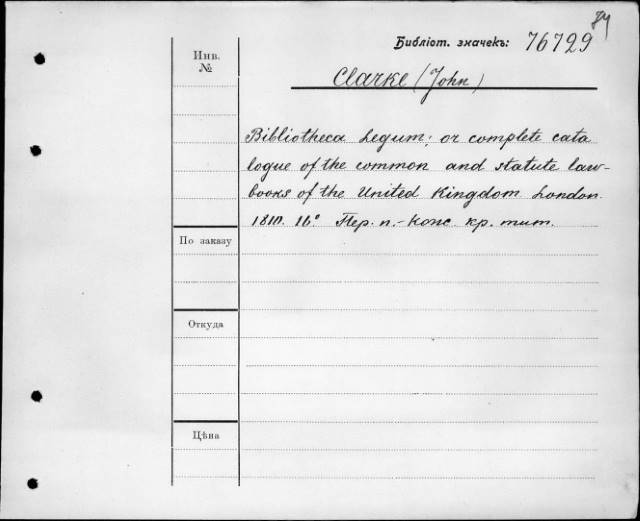 Библіот. значекъ: 76729
Инв.
№
Clarke (John)
Bibliotheca Legum; or complete cata
logue of the common and statute law-
books of the United Kingdom London.
1810. 16° Пер. п.-кож. кр. тит.
По заказу
Откуда
Цѣна